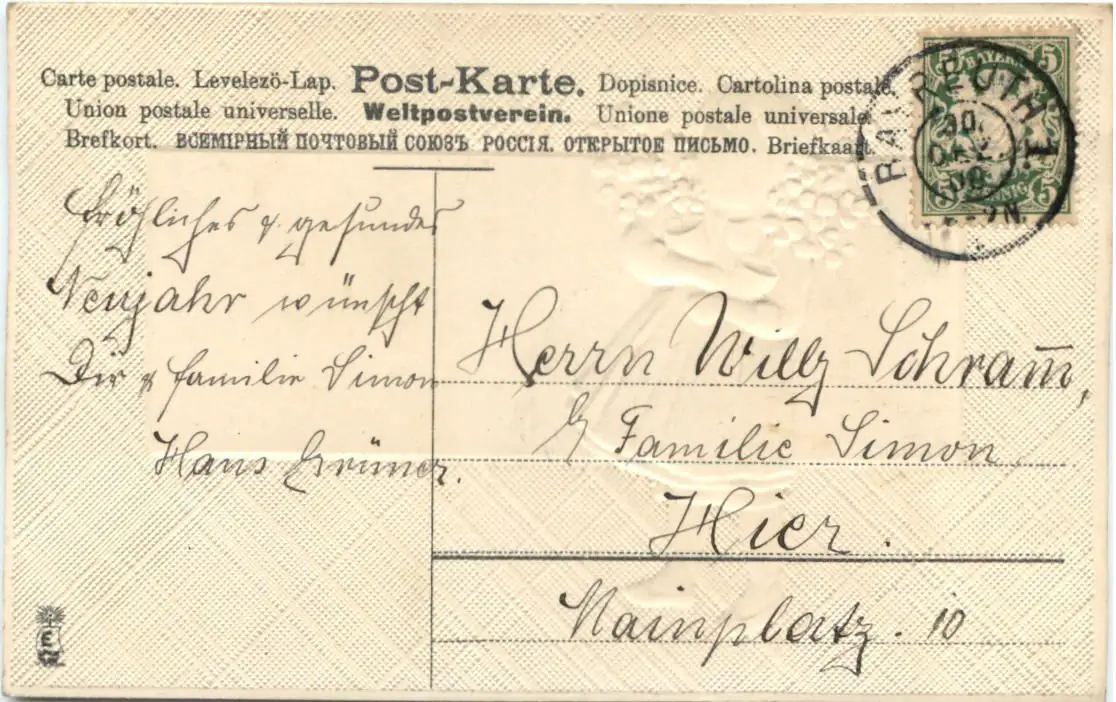 Carte postale. Levelezö-Lap. Post-Karte. Dopisnice. Cartolina postale.
Union postale universelle. Weltpostverein. Unione postale universale
Brefkort. ВСЕМІРНЫЙ ПОЧТОВЫЙ СОЮЗЪ РОССІЯ. ОТКРЫТОЕ ПИСЬМО. Briefkaart.
5 BAYERN 5
BAYREUTH 1.
30.
DEZ.
08
5 5
N.
Fröhliches & gesundes
Neujahr wünscht
Dir & familie Simon
Hans Grüner.
Herrn Willy Schram̅,
b/ Familie Simon
Hier.
Mainplatz. 10